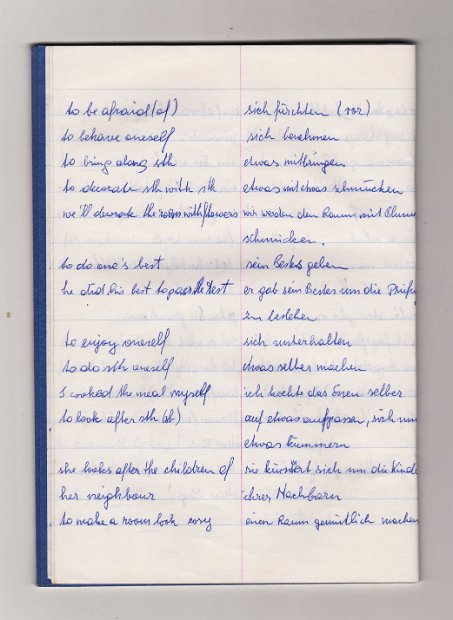 to be afraid (of) sich fürchten (vor)
to behave oneself sich benehmen
to bring along sth etwas mitbringen
to decorate sth with sth etwas mit etwas schmücken
we'll decorate the room with flowers wir werden den Raum mit Blume
schmücken.
to do one's best sein Bestes geben
he did his best to pass the test er gab sein Bestes um die Prüfu
zu bestehen
to enjoy oneself sich unterhalten
to do sth oneself etwas selber machen
I cooked the meal myself ich kochte das Essen selber
to look after sth (sb) auf etwas aufpassen, sich um
etwas kümmern
she looks after the children of sie kümmert sich um die Kinde
her neighbour ihrer Nachbarn
to make a room look cosy einen Raum gemütlich machen